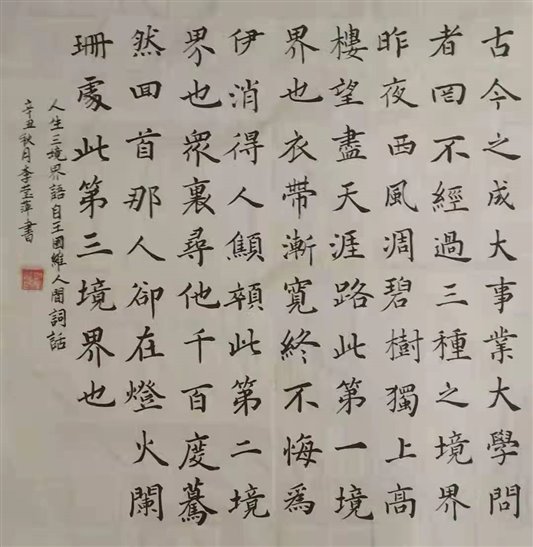 古今之成大事業大學問
者罔不經過三種之境界
昨夜西風凋碧樹獨上高
樓望盡天涯路此第一境
界也衣帶漸寬終不悔為
伊消得人顦顇此第二境
界也眾裏尋他千百度驀
然回首那人卻在燈火闌
珊處此第三境界也
人生三境界語自王國維人間詞話
辛丑秋月李瑩萍書